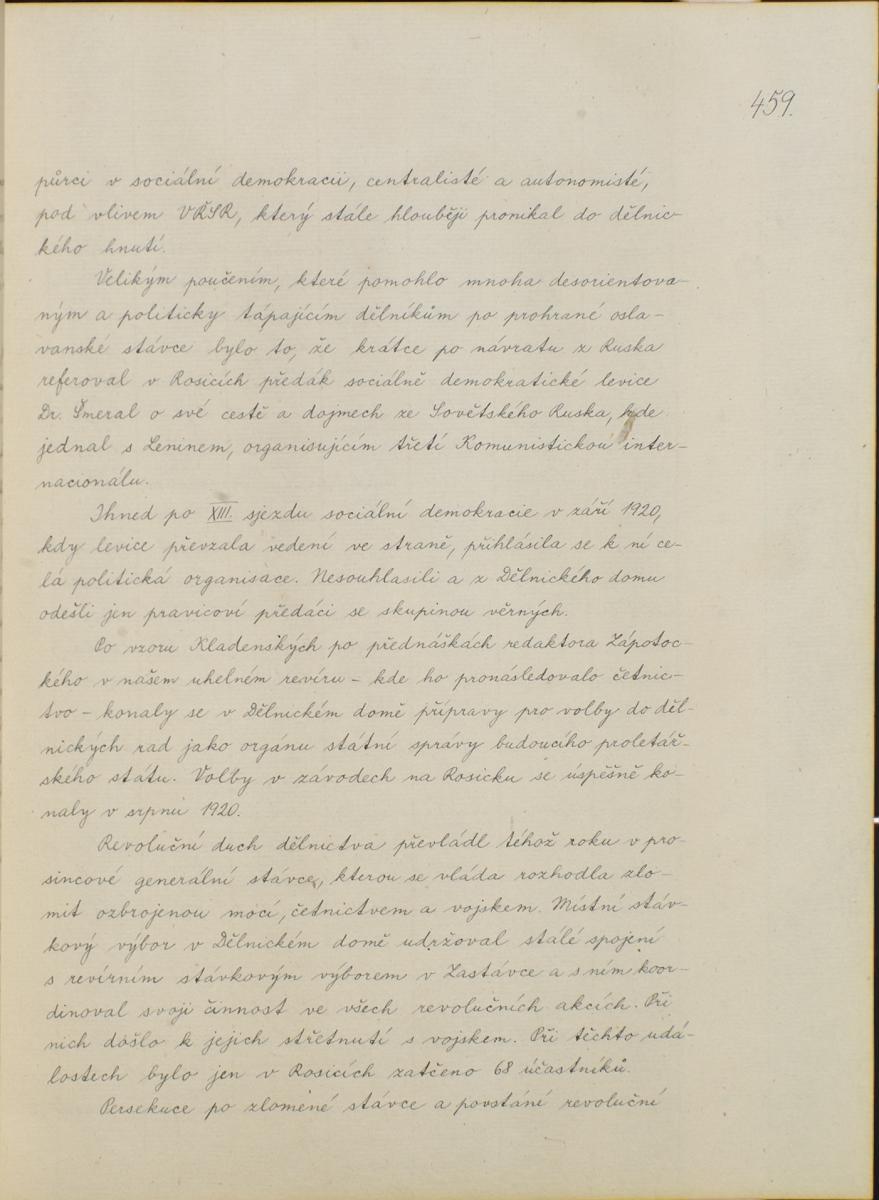 459.
půrci v sociální demokracii, centralisté a autonomisté,
pod vlivem VŘSR, který stále hlouběji pronikal do dělnic-
kého hnutí.
Velikým poučením, které pomohlo mnoha desorientova-
ným a politicky tápajícím dělníkům po prohrané osla-
vanské stávce bylo to, že krátce po návratu z Ruska
referoval v Rosicích předák sociálně demokratické levice
Dr. Šmeral o své cestě a dojmech ze Sovětského Ruska, kde
jednal s Leninem, organisujícím třetí Komunistickou inter-
nacionálu.
Ihned po XIII. sjezdu sociální demokracie v září 1920,
kdy levice převzala vedení ve straně, přihlásila se k ní ce-
lá politická organisace. Nesouhlasili a z Dělnického domu
odešli jen pravicoví předáci se skupinou věrných.
Po vzoru Kladenských po přednáškách redaktora Zápotoc-
kého v našem uhelném revíru - kde ho pronásledovalo četnic-
tvo - konaly se v Dělnickém domě přípravy pro volby do děl-
nických rad jako orgánu státní správy budoucího proletář-
ského státu. Volby v závodech na Rosicku se úspěšně ko-
naly v srpnu 1920.
Revoluční duch dělnictva převládl téhož roku v pro-
sincové generální stávce, kterou se vláda rozhodla zlo-
mit ozbrojenou mocí, četnictvem a vojskem. Místní stáv-
kový výbor v Dělnickém domě udržoval stálé spojení
s revírním stávkovým výborem v Zastávce a s ním koor-
dinoval svoji činnost ve všech revolučních akcích. Při
nich došlo k jejich střetnutí s vojskem. Při těchto udá-
lostech bylo jen v Rosicích zatčeno 68 účastníků.
Persekuce po zlomené stávce a povstání revoluční